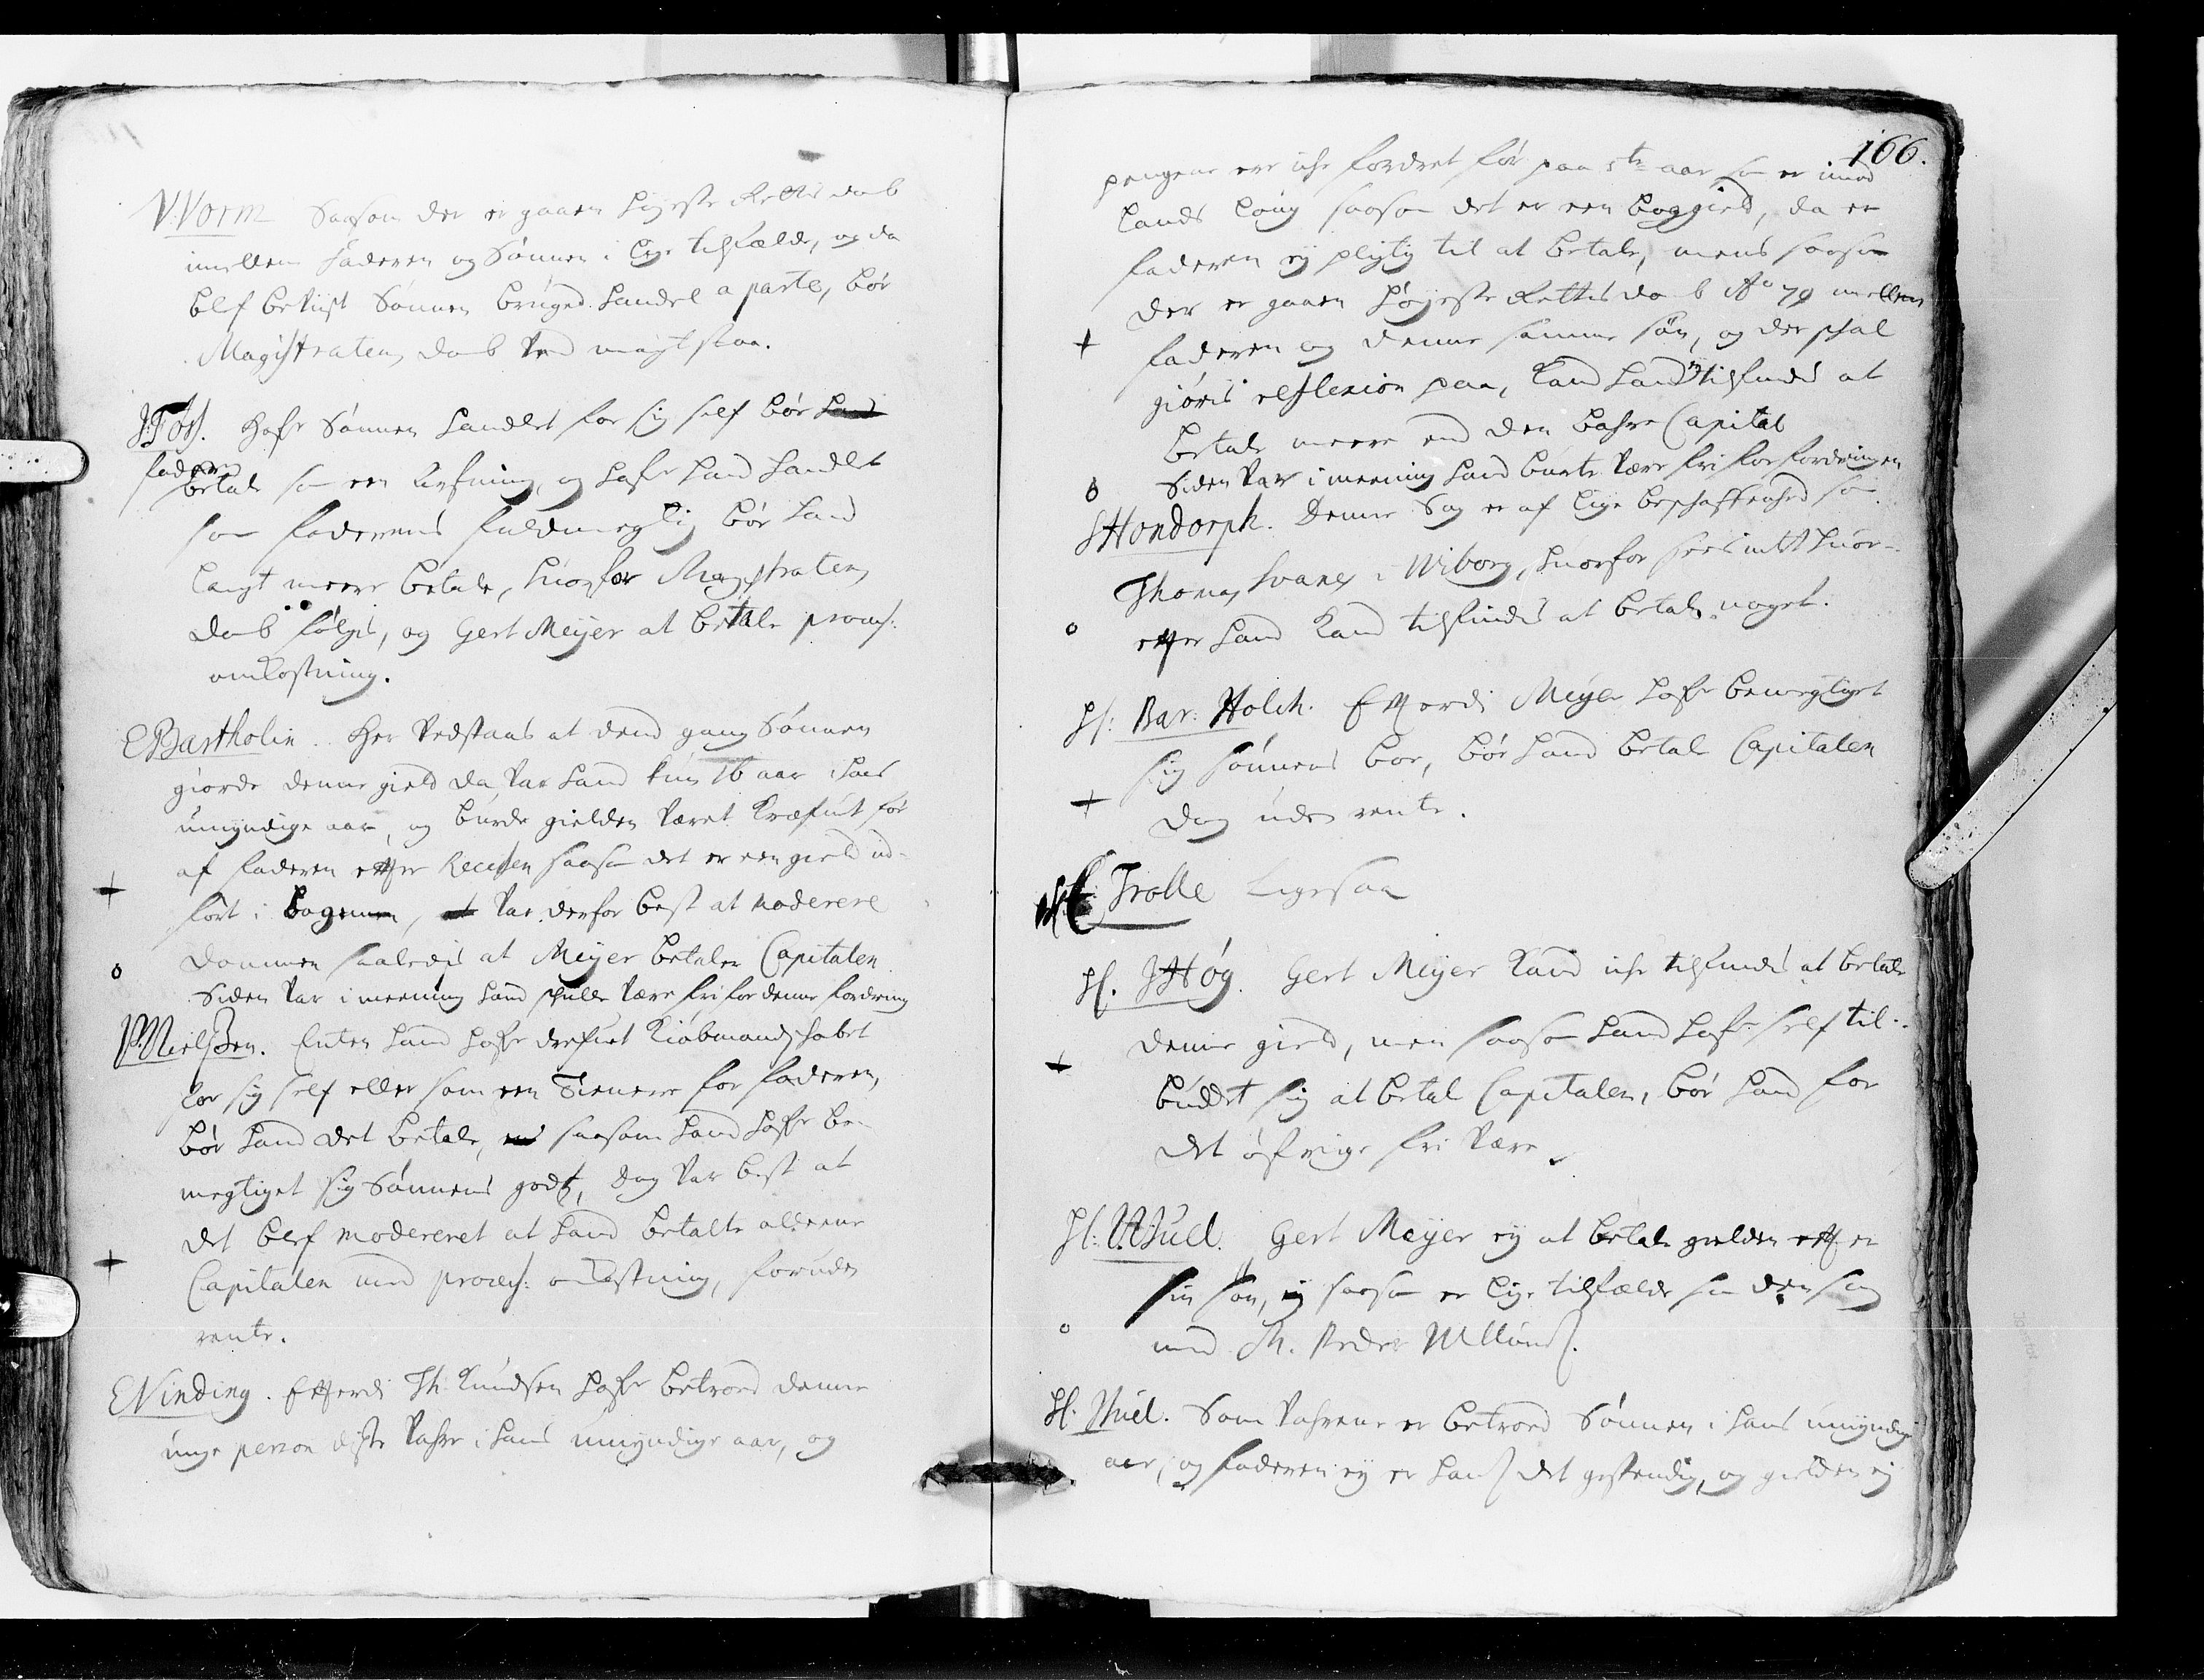 W. Worm Saasom der er gaaen Høyeste Rettis domb
imellem Faderen og Sønnen i lige tilfælde, og da
blef bevist Sønnen bruged handel a parte, bør
Magistratens domb ved magt staa.
J. Foss. Hafr Sønnen handlet for sig self bør hand
faderen
betale som en Arfving, og hafr hand handlet
som faderens fuldmegtig bør hand
langt meere betale, huorfor Magistratens
domb følgis, og Gert Meijer at betale process:
omkostning.
E Bartholin. Her vedstaas at dend gang Sønnen
giorde denne gield da var hand kun 16 aar i hans
umyndige aar, og burde gielden været krefuit før
af faderen effter Recessen saasom det er een gield ud-
+
ført i bogenn, at var derfor best at moderere
dommen saaledis at Meijer betaler Capitalen
o
Siden var i meening hand skulle være fri for denne fordring
P. Nielssen. Enten hand hafr drefuet Kiøbmandskabet
for sig self eller som een Tienere for faderen,
bør hand det betale, saasom hand hafr be-
megtiget sig Sønnens godz, dog var best at
det blef modereret at hand betalte alleene
+
Capitalen med process: omkostning, foruden
rente.
E Vinding. Effterdi Th: Knudsen hafr betroed denne
unge person disse vahre i hans umyndige aar, og
166.
pengene ere iche fordret før paa 5te aar som er imod
lands loug saasom det er een boggield, da er
faderen ej pligtig til at betale, mens saasom
der er gaaen Høyeste Rettis domb Ao 79 mellem
+
faderen og denne samme søn, og der skal
giøris reflexion paa, kand hand tilfindis at
betale meere end den bahre Capital
o
Siden var i meening hand burte være fri for fordringen
S Hondorph. Denne Sag er af lige beschaffenhed som
Thomas Svanes i Wiborg, huorfor sees intet huor-
o
effter hand kand tilfindis at betale noget.
H: Bar: Holck. Effterdi Meijer hafr bemegtiget
sig sønnens boe, bør hand betale Capitalen
+
dog uden rente.
Trolle Ligesaa
H. J Høg. Gert Meijer kand iche tilfindis at betale
denne gield, men saasom hand hafr self til-
+
buddet sig at betale Capitalen, bør hand for
det øfrige fri være.
H: V. Juel. Gert Meijer ej at betale gielden effter
sin søn, saasom er lige tilfælde som den sag
o
med
H. Juel. Som vahrene er betroed Sønnen i hans umyndige
aar, og faderen ej er hans det gestendig, og gielden ej